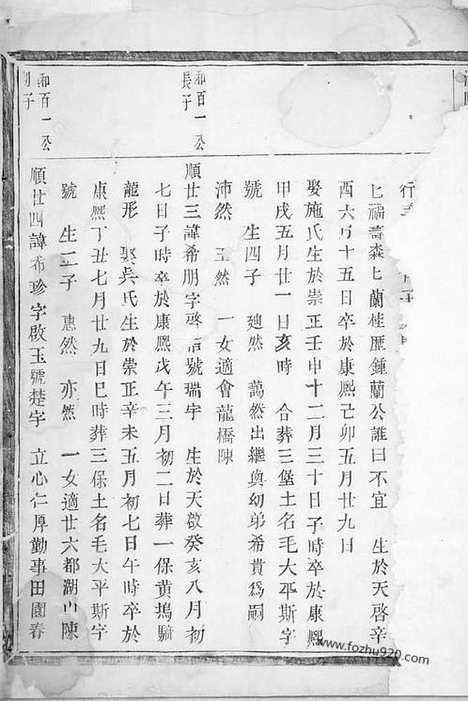 行
匕禱壽森匕蘭桂匪鍾蘭公誰曰不宜 生於天啓辛
酉六月十五日卒於康熙己卯五月廿九日
娶施氏生於崇正壬申十二月三十日子時卒於康熙
甲戌五月廿一日亥時 合葬三堡土名毛大平斯字
號 生四子 廸然 萬然出繼與幼弟希貴為嗣
沛然 玉然 一女適會龍橋陳
和百一公
長子
順廿三諱希朋字啓 號瑞宇 生於天啟癸亥八月初
七日子時卒於康熙戊午三月初二日葬一保黃塢騎
龍形 娶吳氏生於崇正辛未五月初七日午時卒於
康熙丁丑七月廿九日巳時葬三保土名毛大平斯字
號 生二子 惠然 亦然 一女適廿六都湖山陳
和百一公
子
順廿四諱希珍字啟玉號楚宇 立心仁厚勤事田園春
www.fozhu920.com